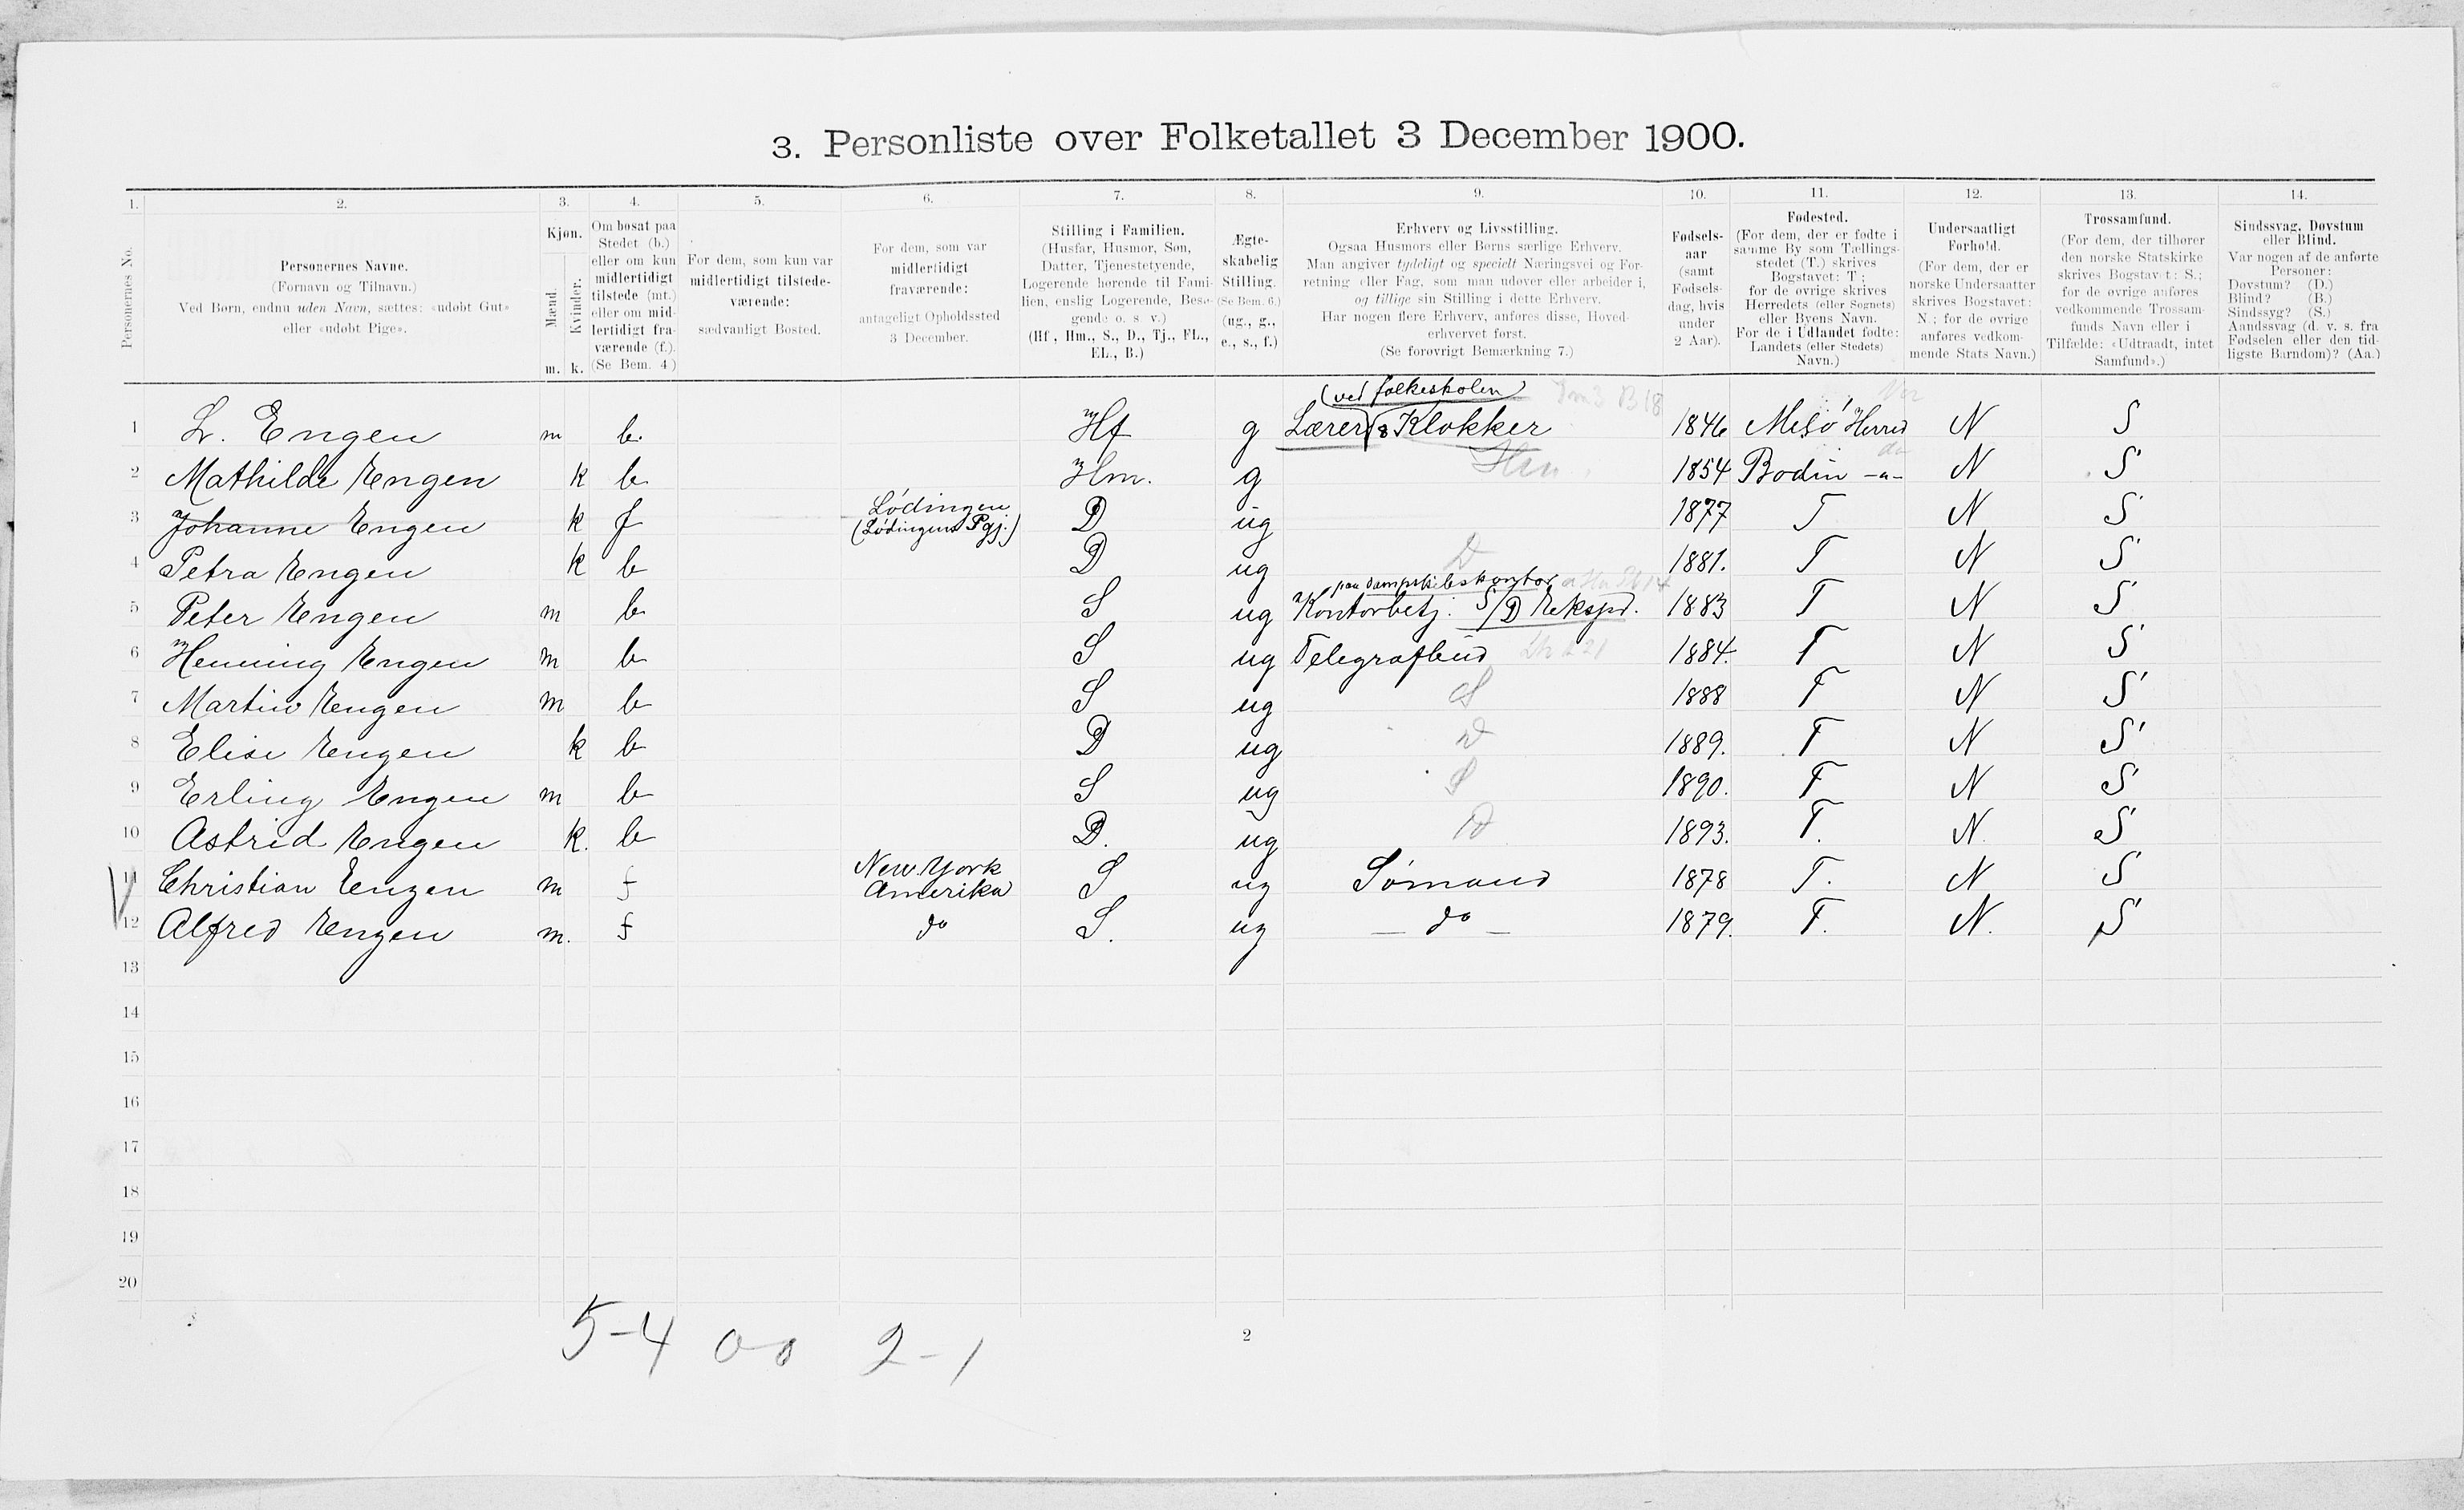 3. Personliste over Folketallet 3 December 1900.
1. 2. 3. 4. 5. 6. 7. 8. 9. 10. 11. 12. 13. 14.
Personernes No.
Personernes Navne.
(Fornavn og Tilnavn.)
Ved Børn, endnu uden Navn, sættes: «udøbt Gut»
eller «udøbt Pige».
Kjøn.
Mænd.
Kvinder.
m. k.
Om bosat paa
Stedet (b.)
eller om kun
midlertidigt
tilstede (mt.)
eller om mid-
lertidigt fra-
værende (f.).
(Se Bem. 4)
For dem, som kun var
midlertidigt tilstede-
værende:
sædvanligt Bosted.
For dem, som var
midlertidigt
fraværende:
antageligt Opholdssted
3 December.
Stilling i Familien.
(Husfar, Husmor, Søn,
Datter, Tjenestetyende,
Logerende hørende til Fami-
lien, enslig Logerende, Besø-
gende o. s. v.)
(Hf., Hm., S., D., Tj., FL.,
EL., B.)
Ægte-
skabelig
Stilling.
(Se Bem. 6.)
(ug., g.,
e., s., f.)
Erhverv og Livsstilling.
Ogsaa Husmors eller Børns særlige Erhverv.
Man angiver tydeligt og specielt Næringsvei og For-
retning eller Fag, som man udøver eller arbeider i,
og tillige sin Stilling i dette Erhverv.
Har nogen flere Erhverv, anføres disse, Hoved-
erhvervet først.
(Se forøvrigt Bemærkning 7.)
Fødsels-
aar
(samt
Fødsels-
dag, hvis
under
2 Aar).
Fødested.
(For dem, der er fødte i
samme By som Tællings-
stedet (T.) skrives
Bogstavet: T.;
for de øvrige skrives
Herredets (eller Sognets)
eller Byens Navn.
For de i Udlandet fødte:
Landets (eller Stedets)
Navn.)
Undersaatligt
Forhold.
(For dem, der er
norske Undersaatter
skrives Bogstavet:
N.; for de øvrige
anføres vedkom-
mende Stats Navn.)
Trossamfund.
(For dem, der tilhører
den norske Statskirke
skrives Bogstavet: S.;
for de øvrige anføres
vedkommende Trossam-
funds Navn eller i
Tilfælde: «Udtraadt, intet
Samfund».)
Sindssvag, Døvstum
eller Blind.
Var nogen af de anførte
Personer:
Døvstum? (D.)
Blind? (B.)
Sindssyg? (S.)
Aandssvag (d. v. s. fra
Fødselen eller den tid-
ligste Barndom)? (Aa.)
(ved folkeskolen)
1 L. Engen m b. Hf g Lærer & Klokker 1846 Melø Herred N S
2 Mathilde Engen k b Hm. g Hm 1854 Bodin -"- N S
Lødingen
3 Johanne Engen k f (Lødingens Pgj.) D ug 1877 T N S
4 Petra Engen k b D ug D 1881. T N S
paa Dampskibskontor
5 Peter Engen m b S ug Kontorbetj. S/D Ekspd. 1883 T N S
6 Henning Engen m b S ug Telegrafbud 1884. T N S
7 Martin Engen m b S ug S 1888 T N S
8 Elise Engen k b D ug D 1889. T N S
9 Erling Engen m b S ug S 1890. T N S
10 Astrid Engen k. b D. ug D 1893. T. N. S
New York
11 Christian Engen m f Amerika S ug Sømand 1878 T. N S
12 Alfred Engen m. f do S. ug - do - 1879. T. N. S
13
14
15
16
17
18
19
20
5-4 0-0 2-1
2